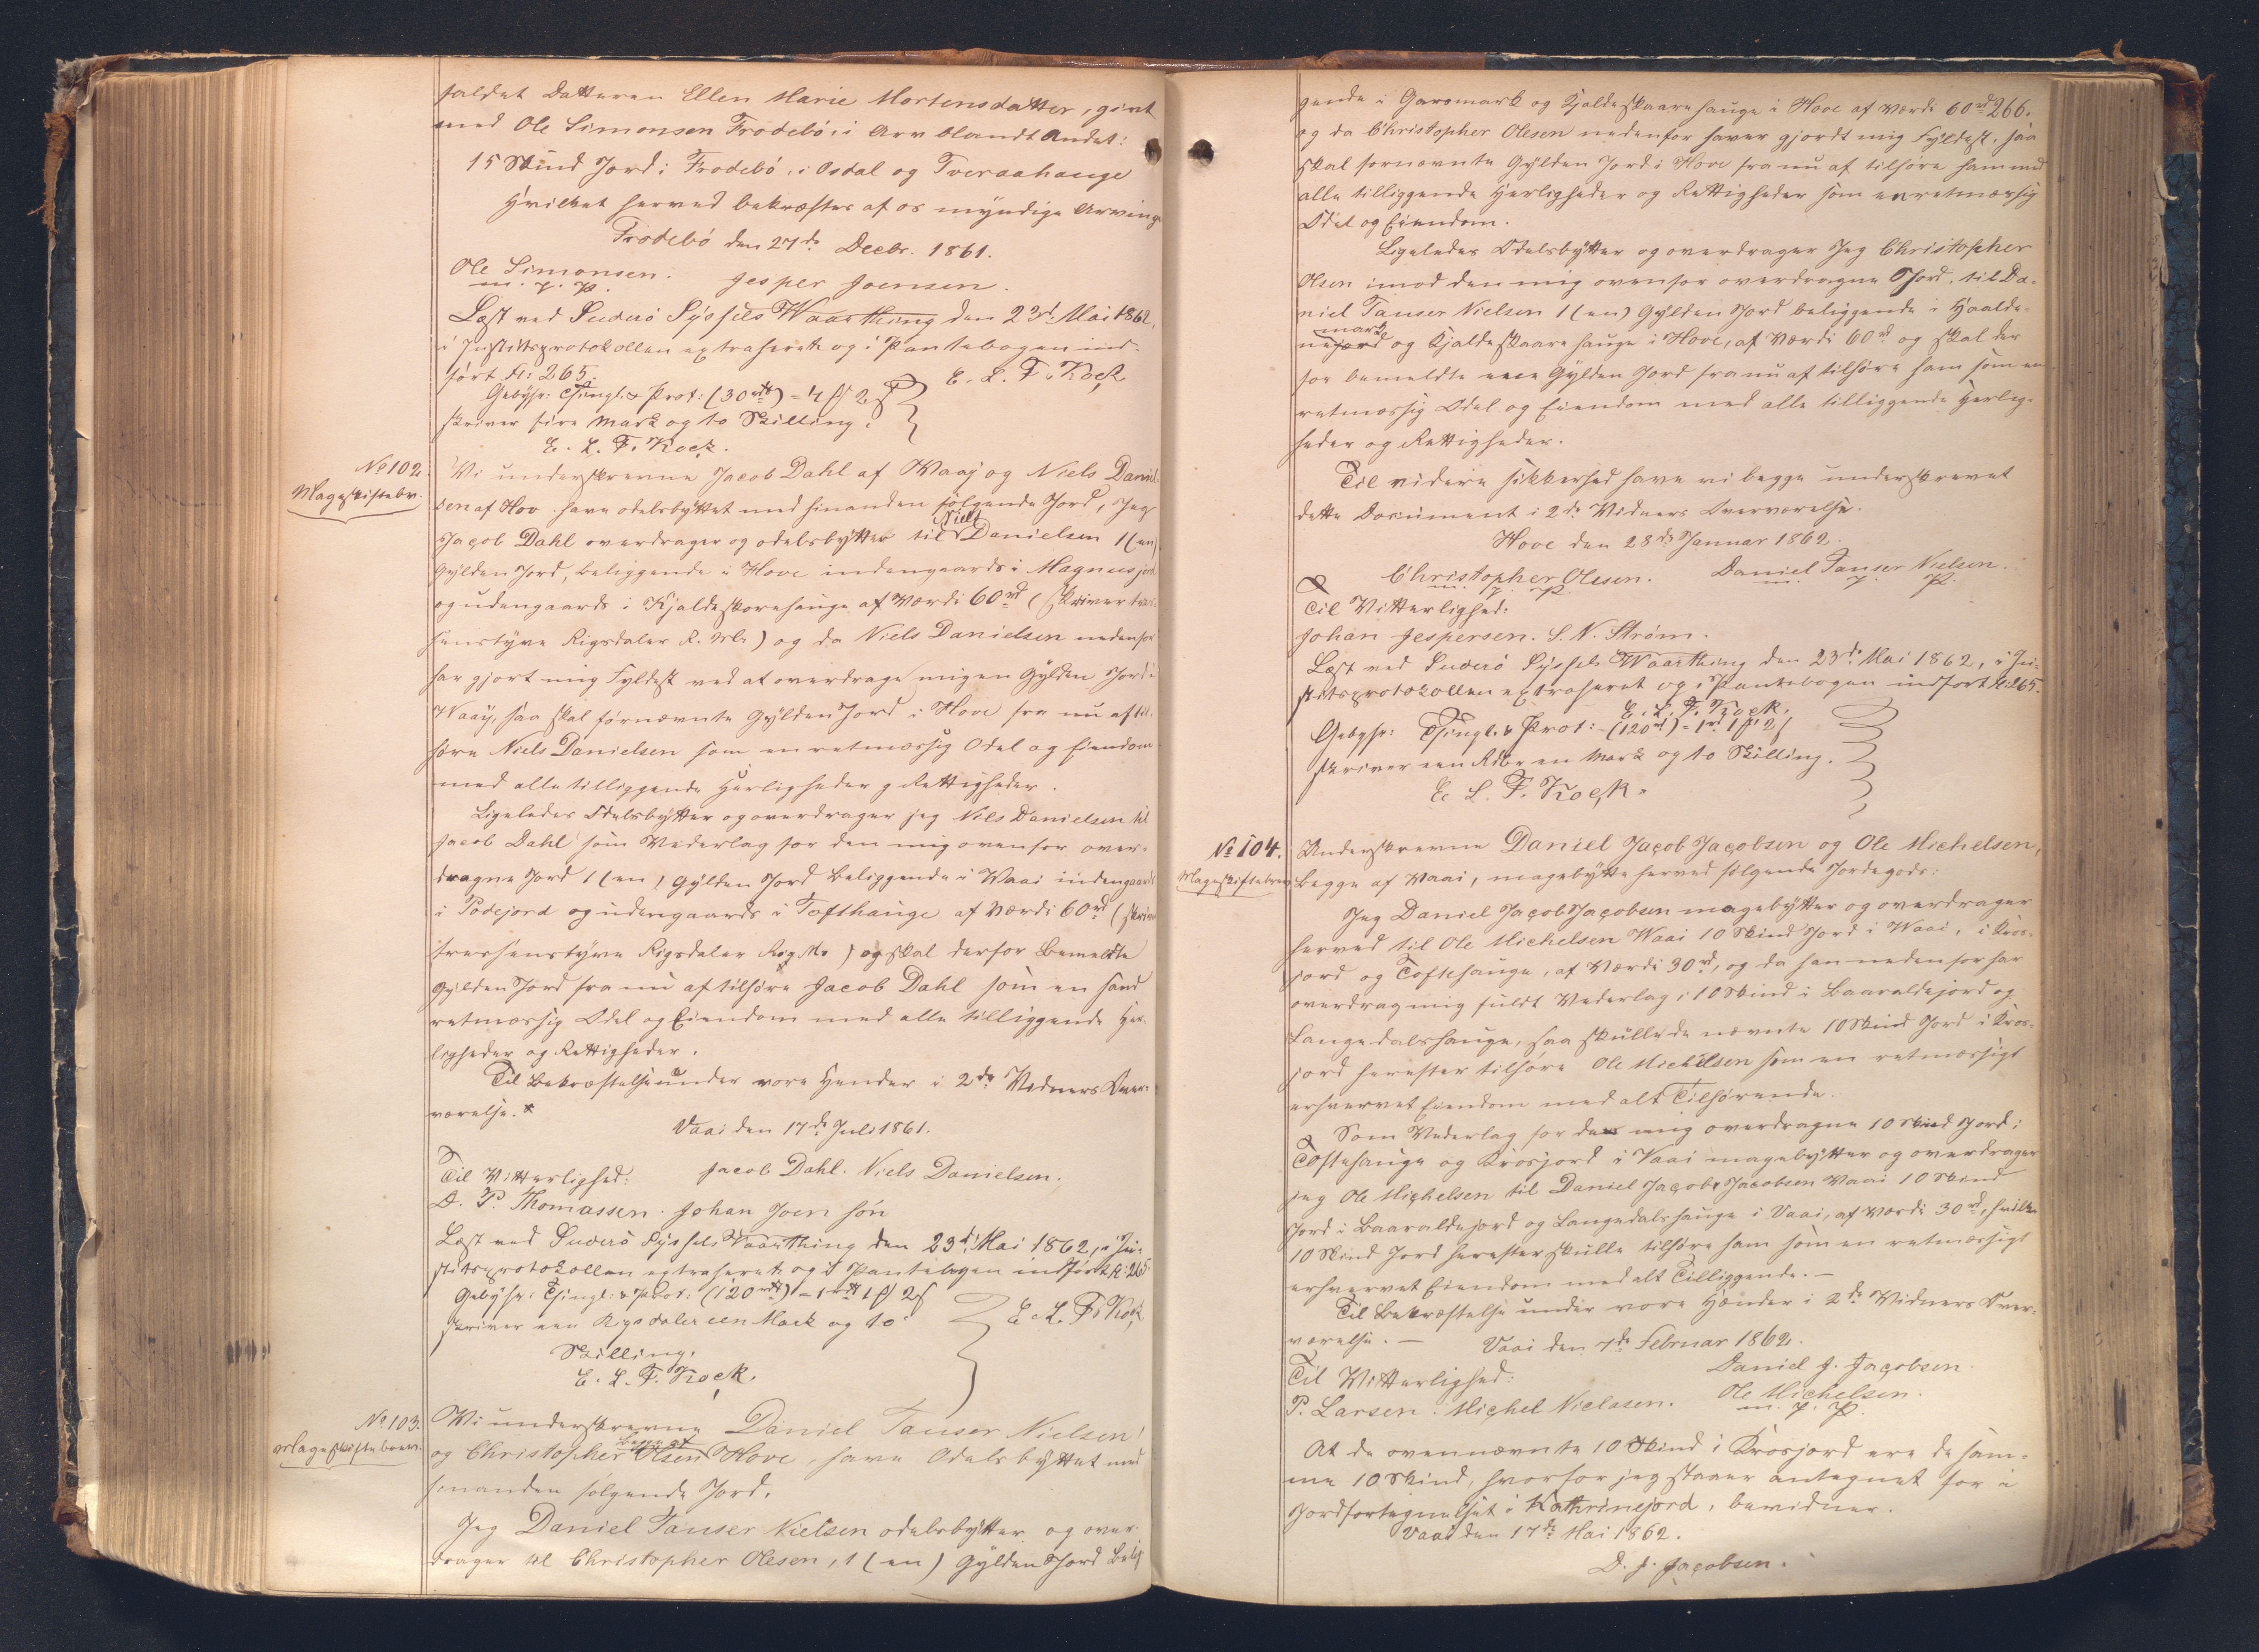 faldet Datteren Ellen Marie Mortensdatter, givt
med Ole Simonsen Frodebö i Arv blandt Andet:
15 Skind Jord i Frodebö, i Osdal og Tveraahauge
Hvilket herved bekræftes af os myndige Arvinge
Frodebö den 27de Decbr. 1861.
Ole Simonsen. Jesper Joensen.
m. f. P.
Læst ved Suderö Syssels Waarthing den 23d Mai 1862,
i Justitsprotokollen extraheret og i Pantebogen ind-
fört fl: 265.
E. L. F. Kock
Gebyhr: Thingl. & Prot: (30 rd) = 4 ß 2 ſ
skriver fire Mark og to Skilling.
E. L. F. Kock.
No 102.
Mageskiftebr.
Vi underskrevne Jacob Dahl af Waaj og Niels Daniel-
sen af Hov have odelsbyttet med hinanden fölgende Jord, Jeg
Jacob Dahl overdrager og odelsbytter til Niels Danielsen 1 (en)
Gylden Jord, beliggende i Hove indengaards i Magnusjord
og udengaards i Kjaldeskorehauge af Værdi 60rd (skriver tre-
sindstyve Rigsdaler R. M.) og da Niels Danielsen nedenfor
har gjort mig Fyldest ved at overdrage mig en Gylden Jord i
Waaÿ, saa skal förnævnte Gylden Jord i Hove fra nu af til-
höre Niels Danielsen som en retmæssig Odel og Eiendom
med alle tilliggende Herligheder og Rettigheder.
Ligeledes Odelsbytter og overdrager jeg Nils Danielsen til
Jacob Dahl som Vederlag for den mig ovenfor over-
dragne Jord 1 (en) Gylden Jord beliggende i Waai indengaards
i Podejord og udengaards i Tofthauge af Værdi 60rd (skriver
tresindstyve Rigsdaler Rig. M.) og skal derfor bemeldte
Gylden Jord fra nu af tilhöre Jacob Dahl som en sand
retmæssig Odel og Eiendom med alle tilliggende Her-
ligheder og Rettigheder.
Til Bekræftelse under vore Hænder i 2de Vidners Over-
værelse.
Vaai den 17de Juli 1861.
Til Vitterlighed: Jacob Dahl. Niels Danielsen.
D. P. Thomassen. Johan Joensön
Læst ved Suderö Syssels Vaarthing den 23d Mai 1862, i Ju-
stitsprotokollen extraheret og i Pantebogen indfört fl: 265.
Gebyhr: Thingl: & Prot: (120 rd) = 1 rd 1 ß 2 ſ
skriver een Rigsdaler een Mark og to
E. L. F. Kock
Skilling.
E. L. F. Kock.
No 103.
Mageskiftebrev.
Vi underskrevne Daniel Tauser Nielsen
og Christopher Olsen begge af Hove, have Odelsbyttet med
hinanden fölgende Jord.
Jeg Daniel Tauser Nielsen odelsbytter og over-
drager til Christopher Olesen, 1 (en) Gylden Jord belig-
266.
gende i Garsmark og Kjaldeskaarehauge i Hove af Værdi 60rd
og da Christopher Olesen nedenfor haver gjordt mig Fyldest, saa
skal fornævnte Gylden Jord i Hove fra nu af tilhöre ham med
alle tilliggende Herligheder og Rettigheder som en retmæssig
Odel og Eiendom.
Ligeledes Odelsbytter og overdrager Jeg Christopher
Olsen imod den mig ovenfor overdragne Jord, til Da-
niel Tauser Nielsen 1 (en) Gylden Jord beliggende i Haalde-
mark
nejord og Kjaldeskaarehauge i Hove, af Værdi 60rd og skal der
for bemeldte ene Gylden Jord fra nu af tilhöre ham som en
retmæssig Odel og Eiendom med alle tilliggende Herlig-
heder og Rettigheder.
Til videre Sikkerhed have vi begge underskrevet
dette Document i 2de Vidners Overværelse.
Hove den 28de Januar 1862.
Christopher Olesen. Daniel Tauser Nielsen.
m. f. P. m. f. P.
Til Vitterlighed:
Johan Jespersen. S. N. Ström.
Læst ved Suderö Syssels Waarthing den 23d Mai 1862, i Ju-
stitsprotokollen extraheret og i Pantebogen indfört fl: 265.
E. L. F. Kock.
Gebyhr: Thingl. & Prot: (120 rd) = 1 rd 1 ß 2 ſ
skriver een Rdlr en Mark og to Skilling.
E. L. F. Kock.
No 104.
Mageskiftebrev
Underskrevne Daniel Jacob Jacobsen og Ole Michelsen,
begge af Waai, magebytte herved fölgende Jordegods:
Jeg Daniel Jacob Jacobsen magebytter og overdrager
herved til Ole Michelsen Waai 10 Skind Jord i Waai, i Kros-
jord og Toftehauge, af Værdi 30rd, og da han nedenfor har
overdraget mig fuldt Vederlag i 10 Skind i Baaraldejord og
Langedalshauge, saa skulle de nævnte 10 Skind Jord i Kros-
jord herefter tilhöre Ole Michelsen som en retmæssigt
erhvervet Eiendom med alt Tilhörende.
Som Vederlag for de mig overdragne 10 Skind Jord i
Toftehauge og Krosjord i Vaai magebytter og overdrager
jeg Ole Michelsen til Daniel Jacob Jacobsen Vaai 10 Skind
Jord i Baaraldejord og Langedalshauge i Vaai, af Værdi 30rd, hvilke
10 Skind Jord herefter skulle tilhöre ham som en retmæssigt
erhvervet Eiendom med alt Tilliggende. —
Til Bekræftelse under vore Hænder i 2de Vidners Over-
værelse. — Vaai den 7de Februar 1862.
Til Vitterlighed: Daniel J. Jacobsen.
P. Larsen. Michel Niclasen. Ole Michelsen.
m. f. P.
At de ovennævnte 10 Skind i Krosjord ere de sam-
me 10 Skind, hvorfor jeg staaer antegnet for i
Jordfortegnelset i Kathrinejord, bevidner.
Vaai den 17de Mai 1862.
D. J. Jacobsen.